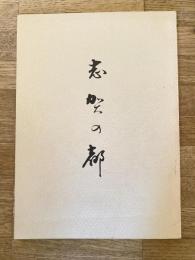 志賀の都